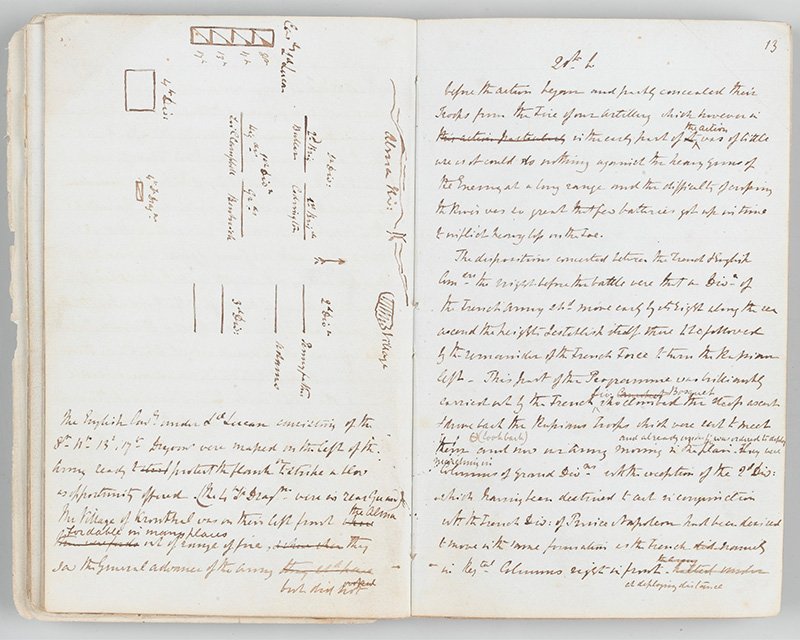 Cavalry
Ld Lucan
17th 13th 11th 8th
4th Div:
4th L. Drag.ns
Alma Riv:
Village
1st Div:
2d Brig
1st Brig de
Buller
Codrington
1st Div:n
Hig.drs
Gds
Sir C Campbell
Bentinck
2d Div:n
Pennyfather
Adams
3rd Div:
The English Cav.y under Ld Lucan consisting of the
8th 11th 13th 17th Dragoons were massed on the left of the
Army ready to protect the flank & to strike a blow
as opportunity offered - The 4 Lt Drag.ns were in rear Guard
the Alma
The Village of was on their left front
fordable in many places
out of range of fire, they
saw the General advance of the Army
but did not
13
20th
before the action began and partly concealed their
Troops from the Fire of our Artillery which however in
the action
this action particularly in the early part of was of little
use as it could do nothing against the heavy Guns of
the Enemy at a long range and the difficulty of crossing
the River was so great that few batteries got up in time
to inflict heavy loss on the Foe.
The dispositions concerted between the French & English
Com.ers the night before the battle were that a Div.n of
the French Army shd move early by its right along the sea
ascend the heights & establish itself there & be followed
by the remainder of the French Force to turn the Russian
left - This part of the Programme was brilliantly
Bosquet
carried out by the French who climbed the steep ascent
& drove back the Russians Troops which were sent to meet
(look back)
and already was ordered to deploy
them and now our Army moving in the plain they were
marching in
Columns of Grand Div.ns with the exception of the 2d Div:
which having been destined to act in conjunction
with the French Div: of Prince Napoleon had been desired
to move in the same formation as the French namely
in Reg.tal Columns right in front - halted under
at deploying distance